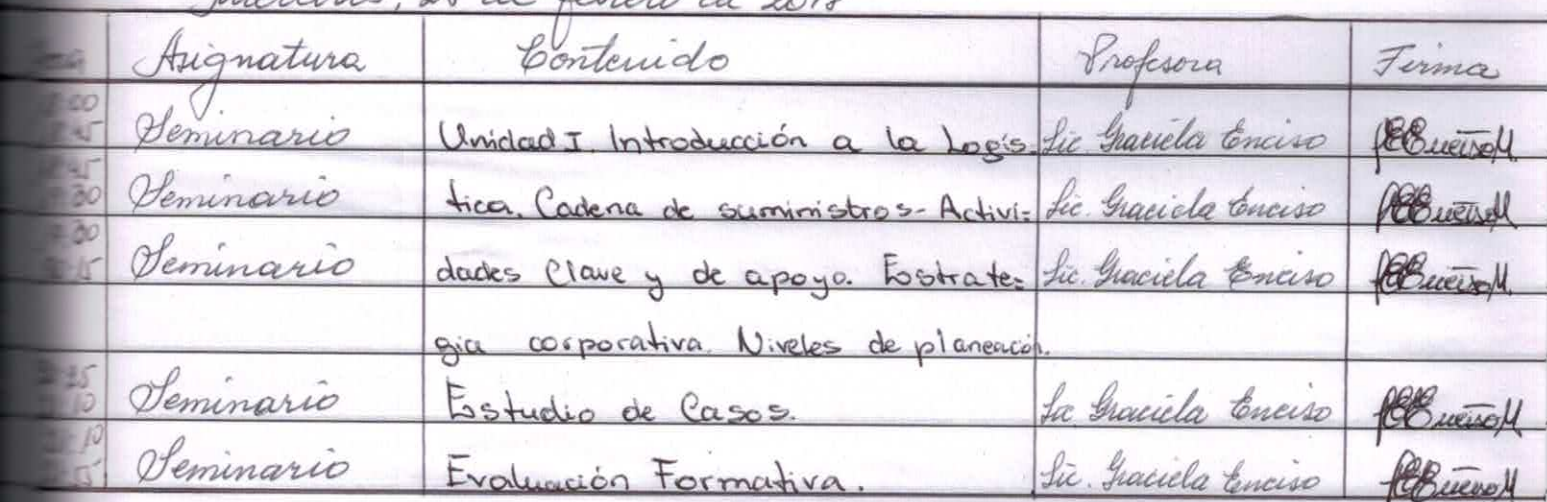 de febrero de 2018
Asignatura Contenido Profesora Firma
Seminario Unidad I. Introducción a la Logís- Lic. Graciela Enciso
Seminario tica. Cadena de suministros - Activi- Lic. Graciela Enciso
Seminario dades Clave y de apoyo. Estrate- Lic. Graciela Enciso
gia corporativa. Niveles de planeación.
Seminario Estudio de Casos. Lic Graciela Enciso
Seminario Evaluación Formativa. Lic. Graciela Enciso